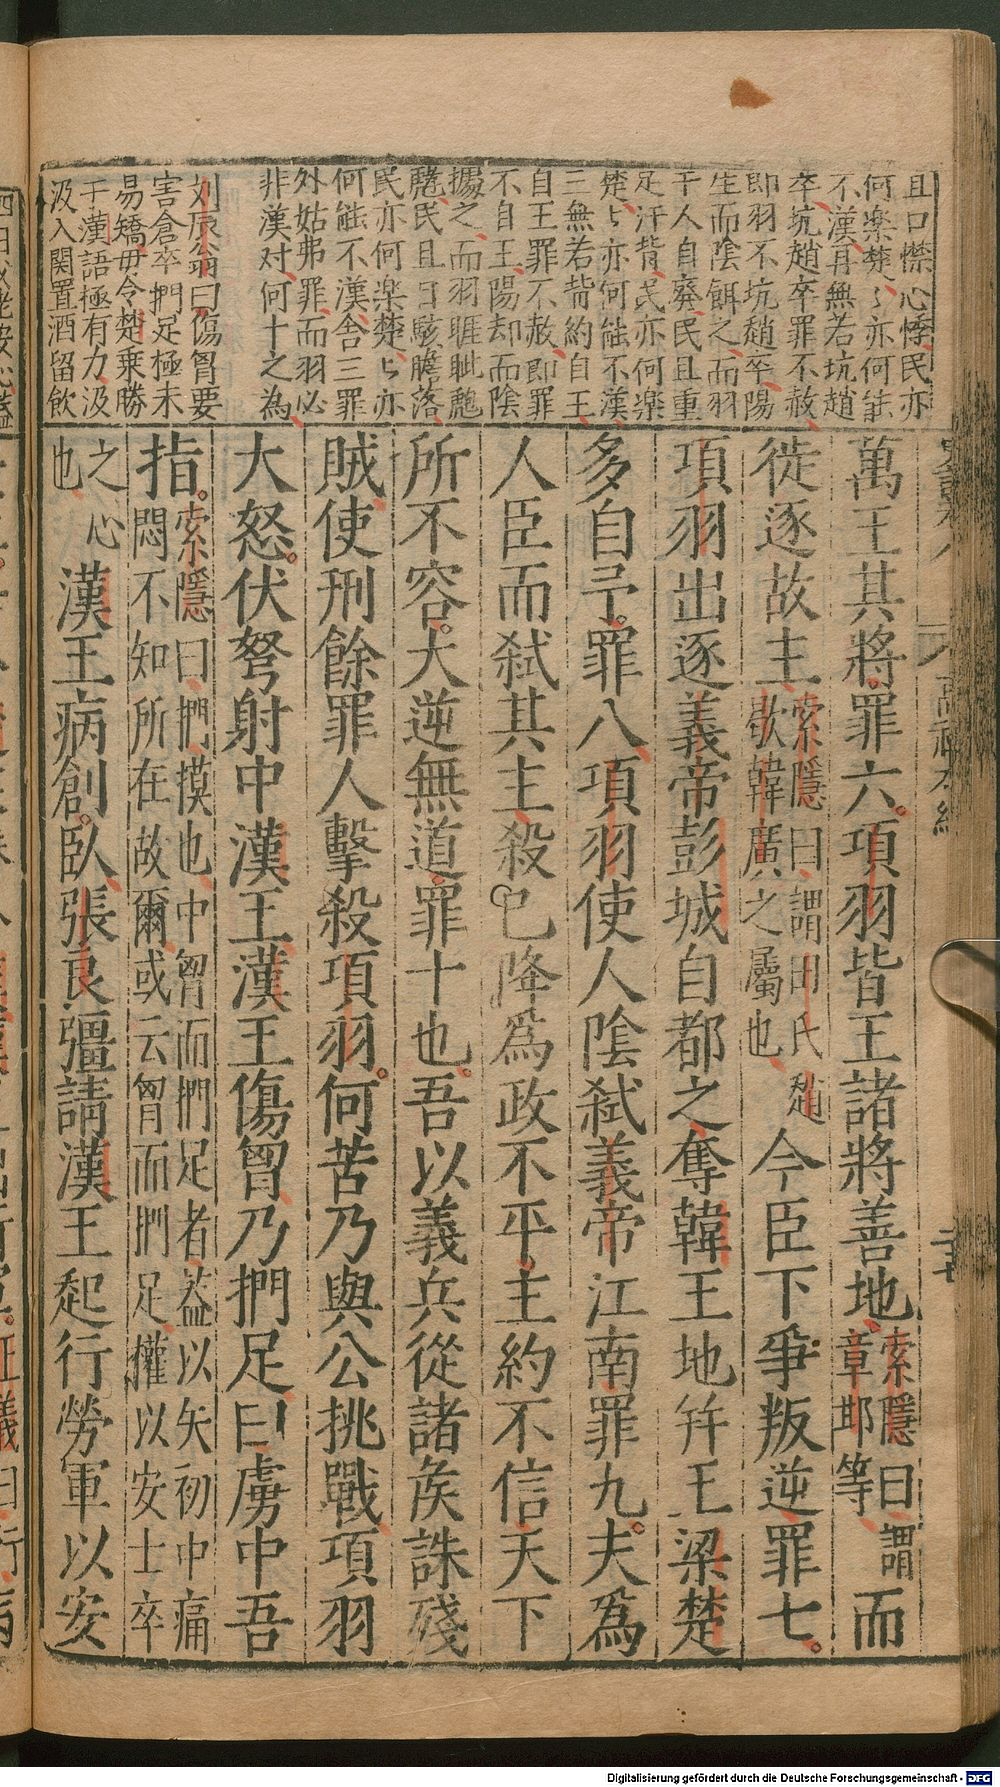 且口㦗心悸民亦
何楽楚々亦何能
不漢再無若坑趙
卒坑趙卒罪不赦
即羽不坑趙卒陽
生而陰餌之而羽
千人自廢民且重
足汗背民亦何楽
楚々亦何能不漢
三無若背約自王
自王罪不赦即罪
不自王陽却而陰
攘之而羽睚眦
民且目駭膽落
民亦何楽楚々亦
何能不漢舎三罪
外姑弗罪而羽必
非漢对何十之為
刘辰翁曰傷胷要
害倉卒捫足極未
易矯毋令楚乗勝
于漢語極有力汲
汲入関置酒留飲
萬王其將罪六項羽皆王諸將善地索隱曰謂章邯等而
徙逐故主索隱曰謂田氏趙歇韓廣之屬也今臣下爭叛逆罪七
項羽出逐義帝彭城自都之奪韓王地幷王梁楚
多自予罪八項羽使人陰弑義帝江南罪九夫爲
人臣而弑其主殺已降爲政不平主約不信天下
所不容大逆無道罪十也吾以義兵從諸侯誅殘
賊使刑餘罪人擊殺項羽何苦乃與公挑戰項羽
大怒伏弩射中漢王漢王傷胷乃捫足曰虜中吾
指索隱曰捫摸也中胷而捫足者蓋以矢初中痛悶不知所在故爾或云胷而捫足權以安士卒
之心也漢王病創臥張良彊請漢王起行勞軍以安
高祖本紀
Digitalisierung gefördert durch die Deutsche Forschungsgemeinschaft - DFG